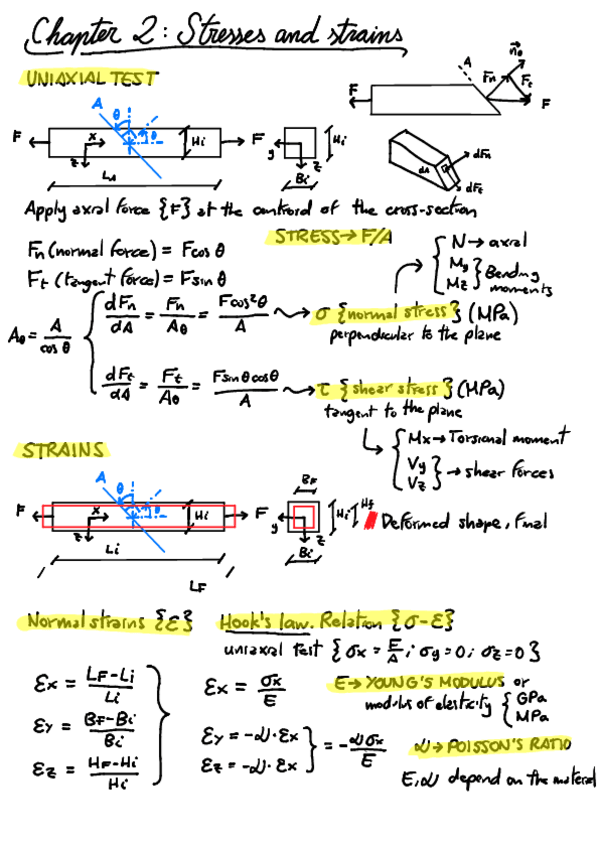 Chapter 2: Stresses and strains
UNIAXIAL TEST
A
θ
θ
F
x
z
Hi
F
y
z
Hi
Bi
LA
A
n⃗θ
Fn
Ft
F
F
dA
dFn
dFt
Apply axial force {F} at the centroid of the cross-section
Fn (normal force) = F cos θ
Ft (tangent force) = F sin θ
STRESS → F/A
N → axial
My
Mz } Bending moments
Aθ = A / cos θ
dFn/dA = Fn/Aθ = F cos²θ / A ⟿ σ {normal stress} (MPa)
perpendicular to the plane
dFt/dA = Ft/Aθ = F sin θ cos θ / A ⟿ τ {shear stress} (MPa)
tangent to the plane
Mx → Torsional moment
Vy
Vz } → shear forces
STRAINS
A
θ
θ
F
x
z
Hi
F
Li
LF
BF
y
z
Bi
Hi
Hf
Deformed shape, final
Normal strains {ε}
Hook's law. Relation {σ-ε}
uniaxial test {σx = F/A ; σy = 0 ; σz = 0}
εx = (LF - Li) / Li
εy = (BF - Bi) / Bi
εz = (HF - Hi) / Hi
εx = σx / E
E → YOUNG'S MODULUS or
modulus of elasticity { GPa
MPa
εy = -ν · εx
εz = -ν · εx } = -νσx / E
ν → POISSON'S RATIO
E, ν depend on the material